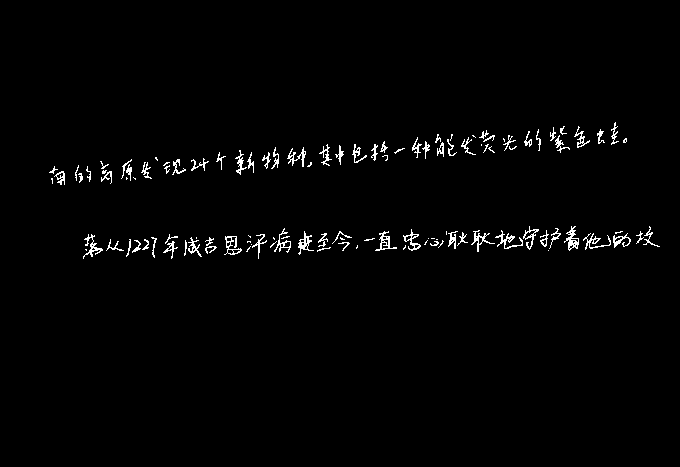 南的高原发现24个新物种,其中包括一种能发荧光的紫色蛙。
落从1227年成吉思汗病逝至今,一直忠心耿耿地守护着他的坟